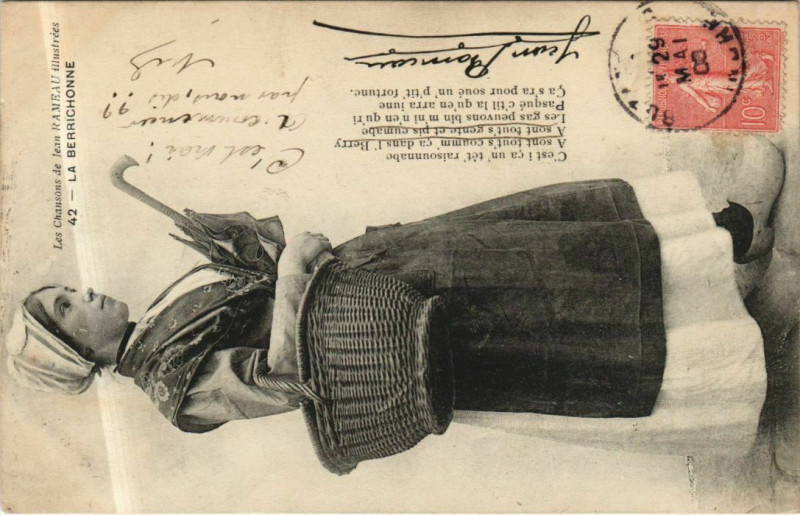 Les Chansons de Jean RAMEAU illustrées
42 — LA BERRICHONNE
C'est i ça un' tét' raisounnabe
A sont tout's coumm' ça dans l' Berry
A sont tout's gente et pis eumabe
Les gas peuvons bin m'n i n'en qu ri
Pasqué c'til la qu'en arra iune
Ça s'ra pour soué un' p'tit fortune.
Jean Rameau
C'est vrai!
A commencer
par nous, dis ??
29
MAI
08
10c